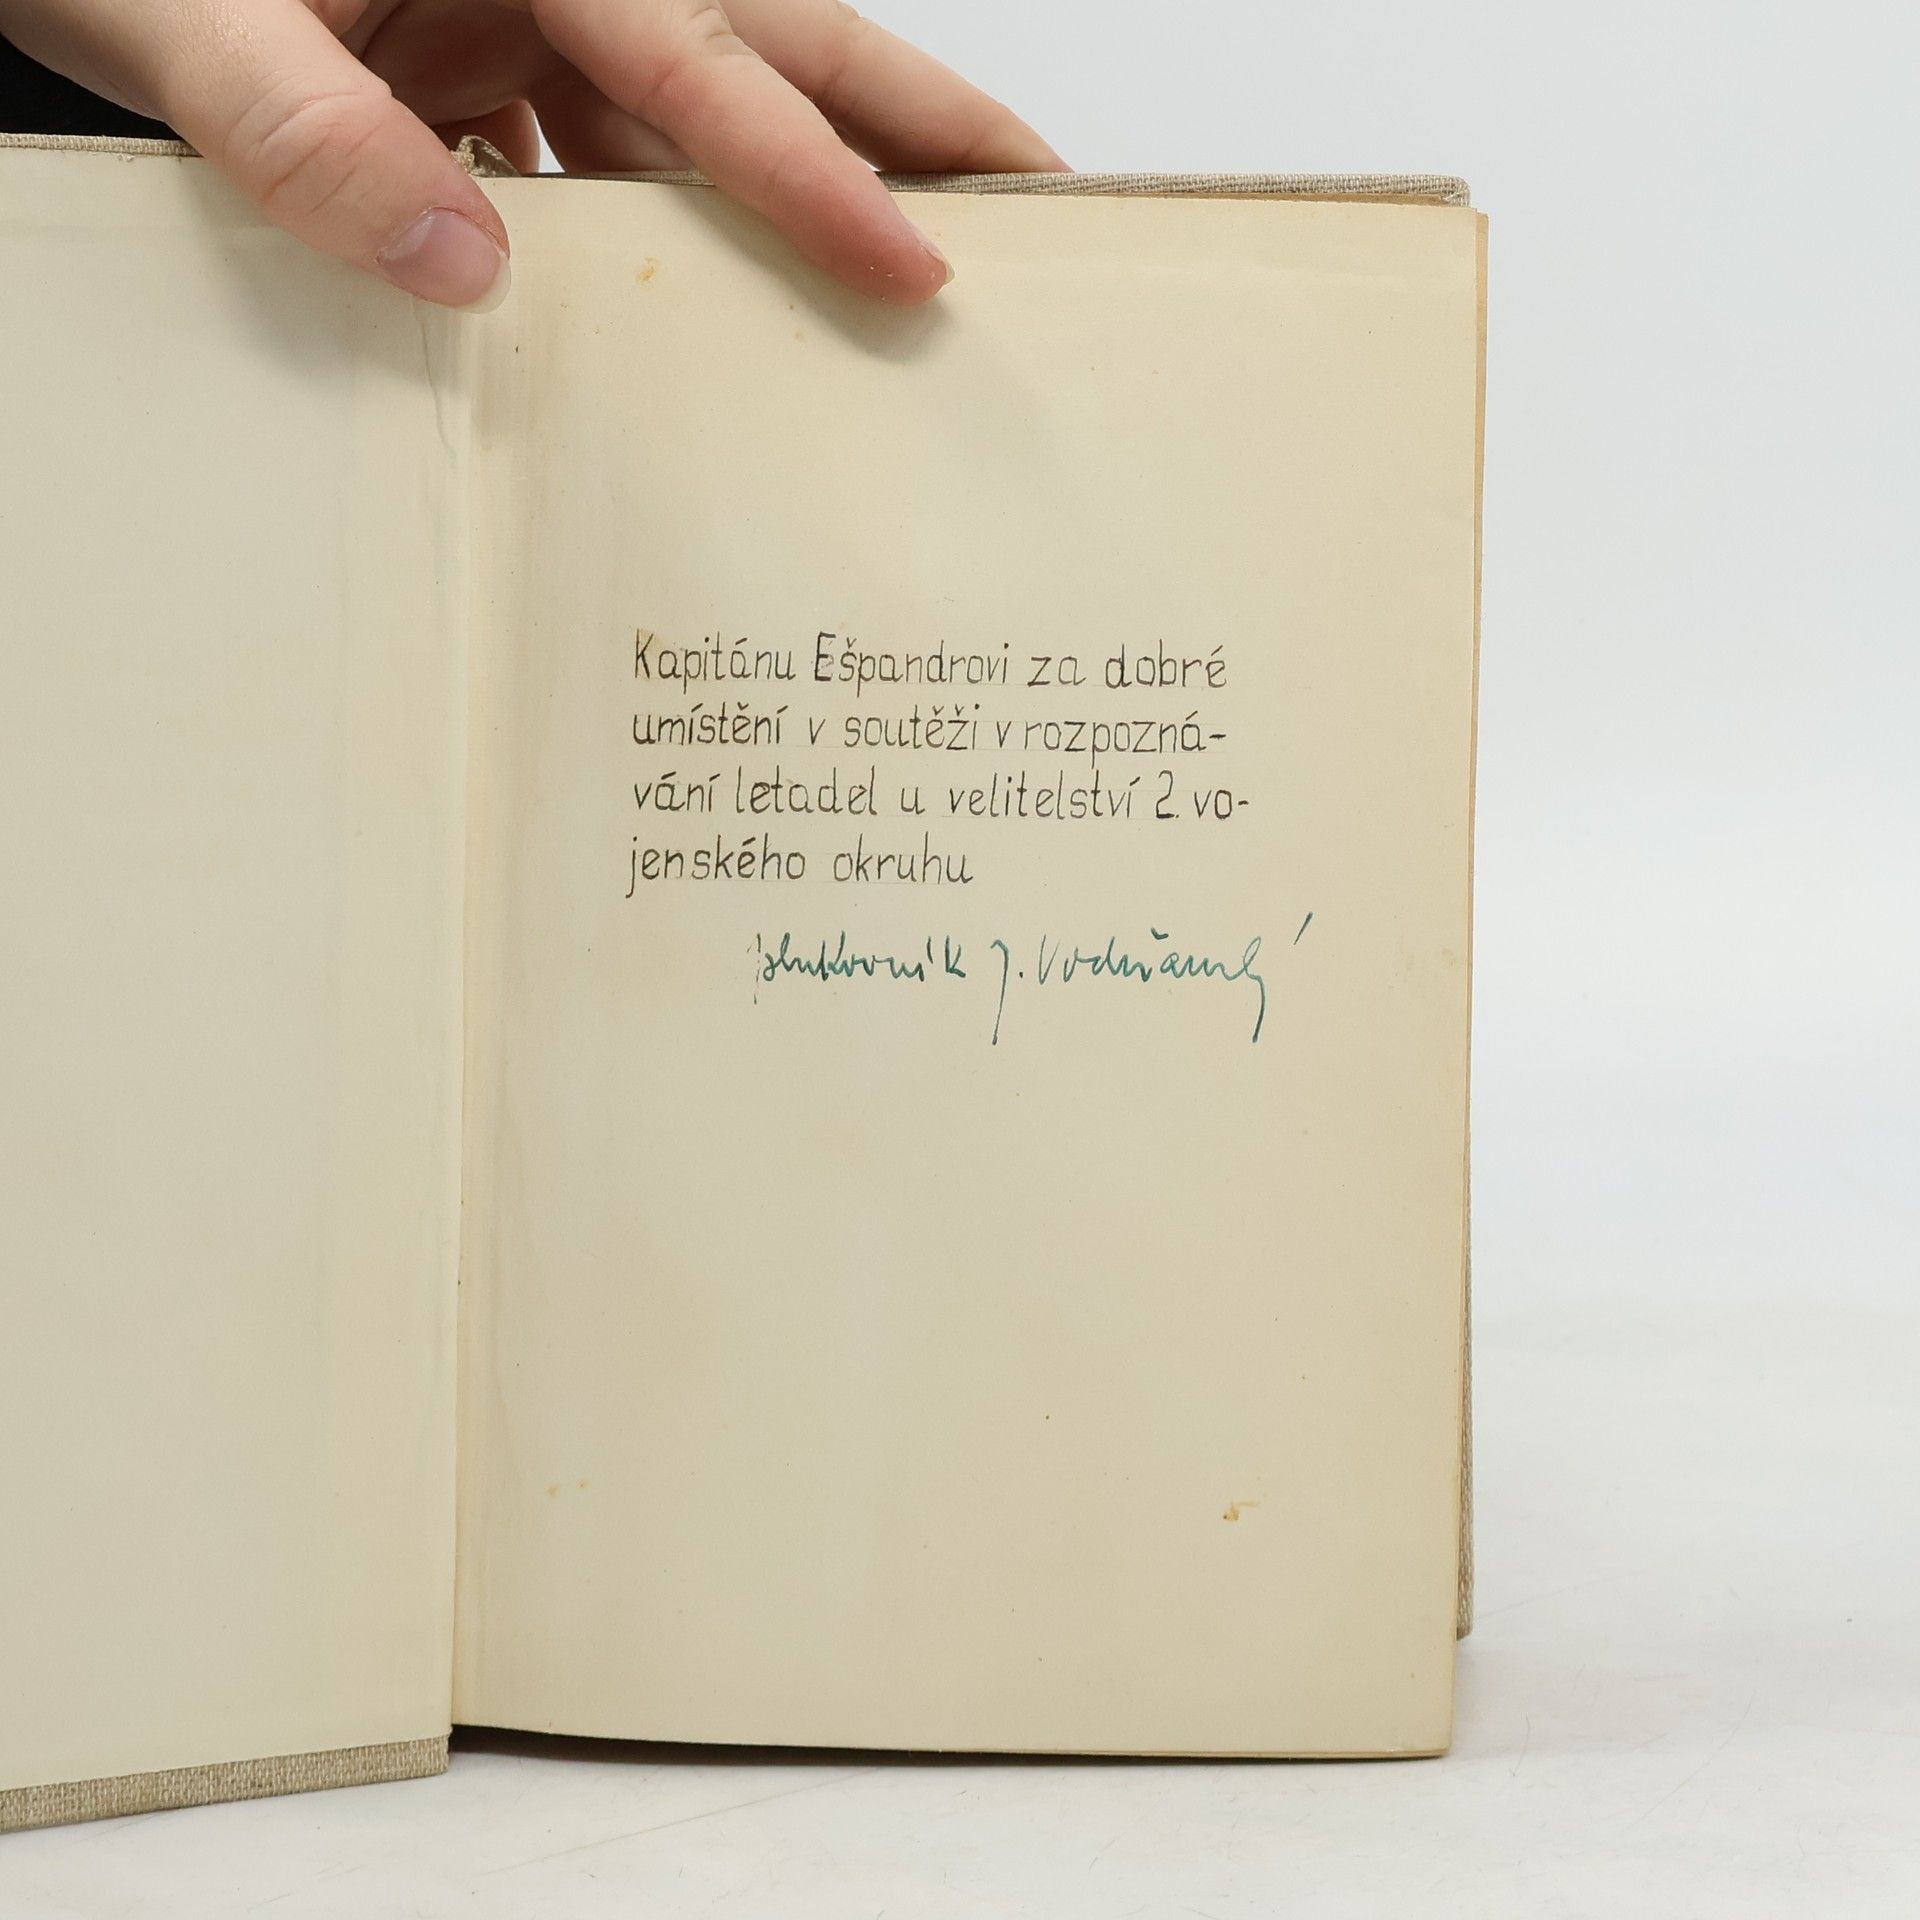 Kapitánu Ešpandrovi za dobré
umístění v soutěži v rozpozná-
vání letadel u velitelství 2. vo-
jenského okruhu
plukovník J. Vodňanský